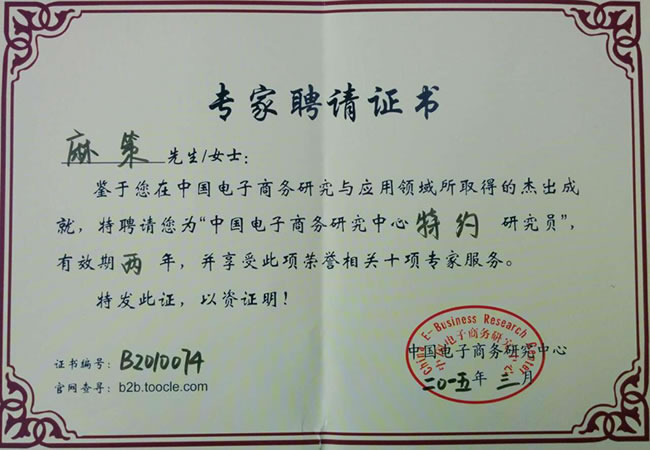 专家聘请证书
麻策 先生/女士：
鉴于您在中国电子商务研究与应用领域所取得的杰出成
就，特聘请您为“中国电子商务研究中心特约 研究员”，
有效期两 年，并享受此项荣誉相关十项专家服务。
特发此证，以资证明！
证书编号：B2010074
官网查寻：b2b.toocle.com
China E-Business Research Center
中国电子商务研究中心
中国电子商务研究中心
二〇一五年 三 月